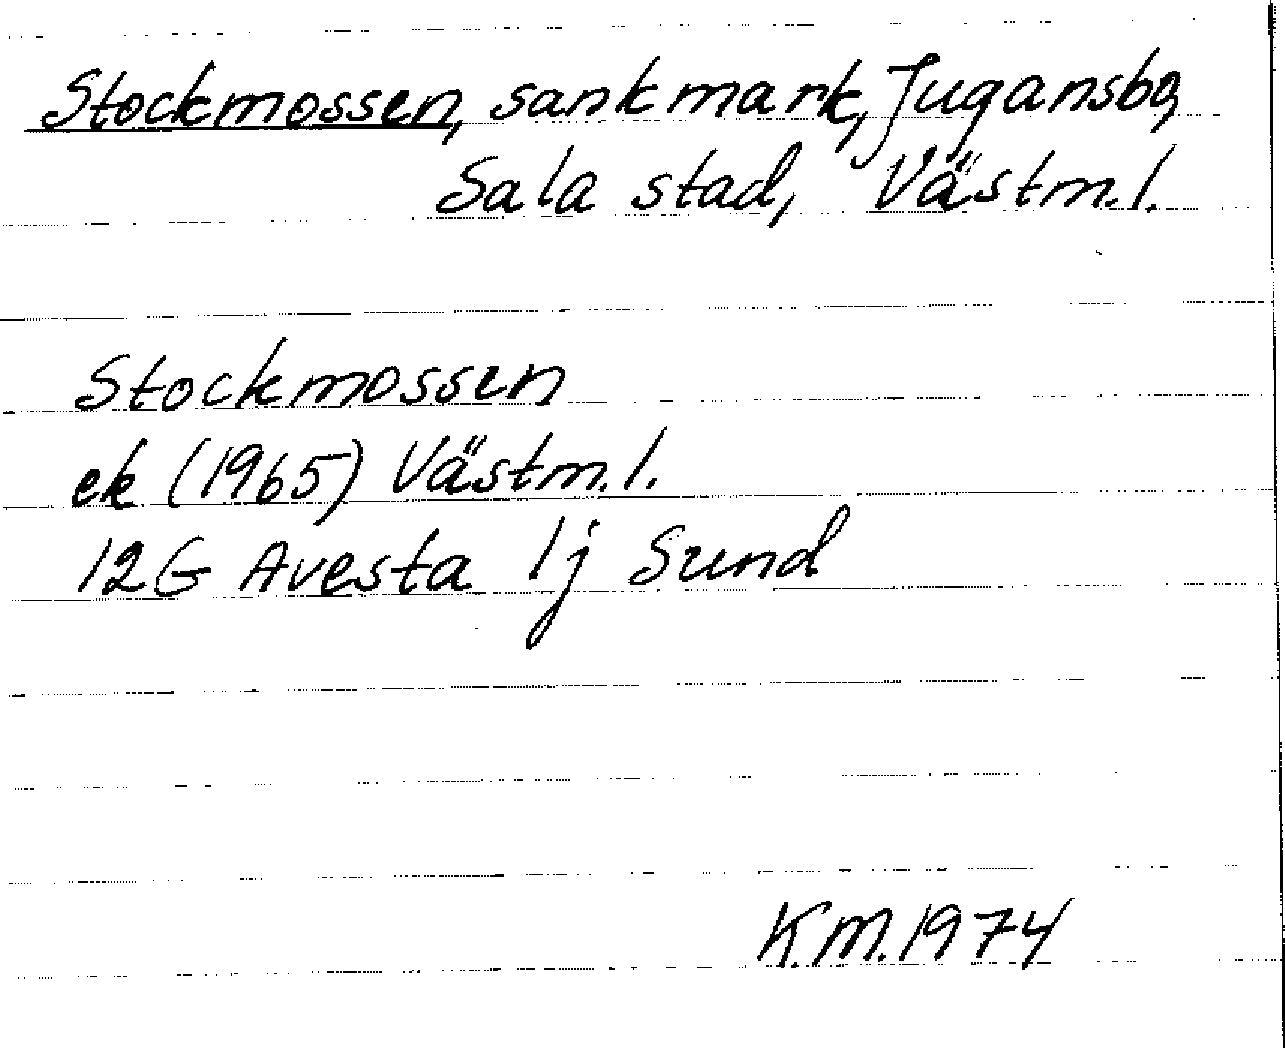 Stockmossen, sankmark, Jugansbo,
Sala stad, Västm.l.
Stockmossen
ek (1965) Västm.l.
12G Avesta 1j Sund
K.M. 1974